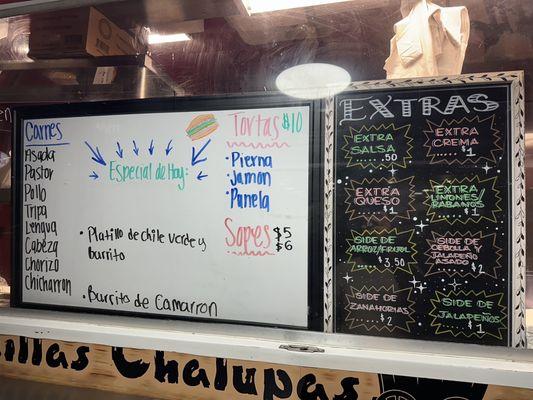 Carnes
Asada
Pastor
Pollo
Tripa
Lengua
Cabeza
Chorizo
Chicharron
Especial de Hoy:
• Platillo de chile verde y
burrito
• Burrito de Camarron
Tortas $10
• Pierna
• Jamon
• Panela
Sopes $5
$6
EXTRAS
EXTRA
SALSA
.......50
EXTRA
CREMA
....$1
EXTRA
QUESO
....$1
EXTRA
LIMONES/
RABANOS
....$1
SIDE DE
ARROZ/FRIJOL
...$3.50
SIDE DE
CEBOLLA Y
JALAPEÑO
ASADO
....$2
SIDE DE
ZANAHORIAS
....$2
SIDE DE
JALAPEÑOS
....$1
Chalupas